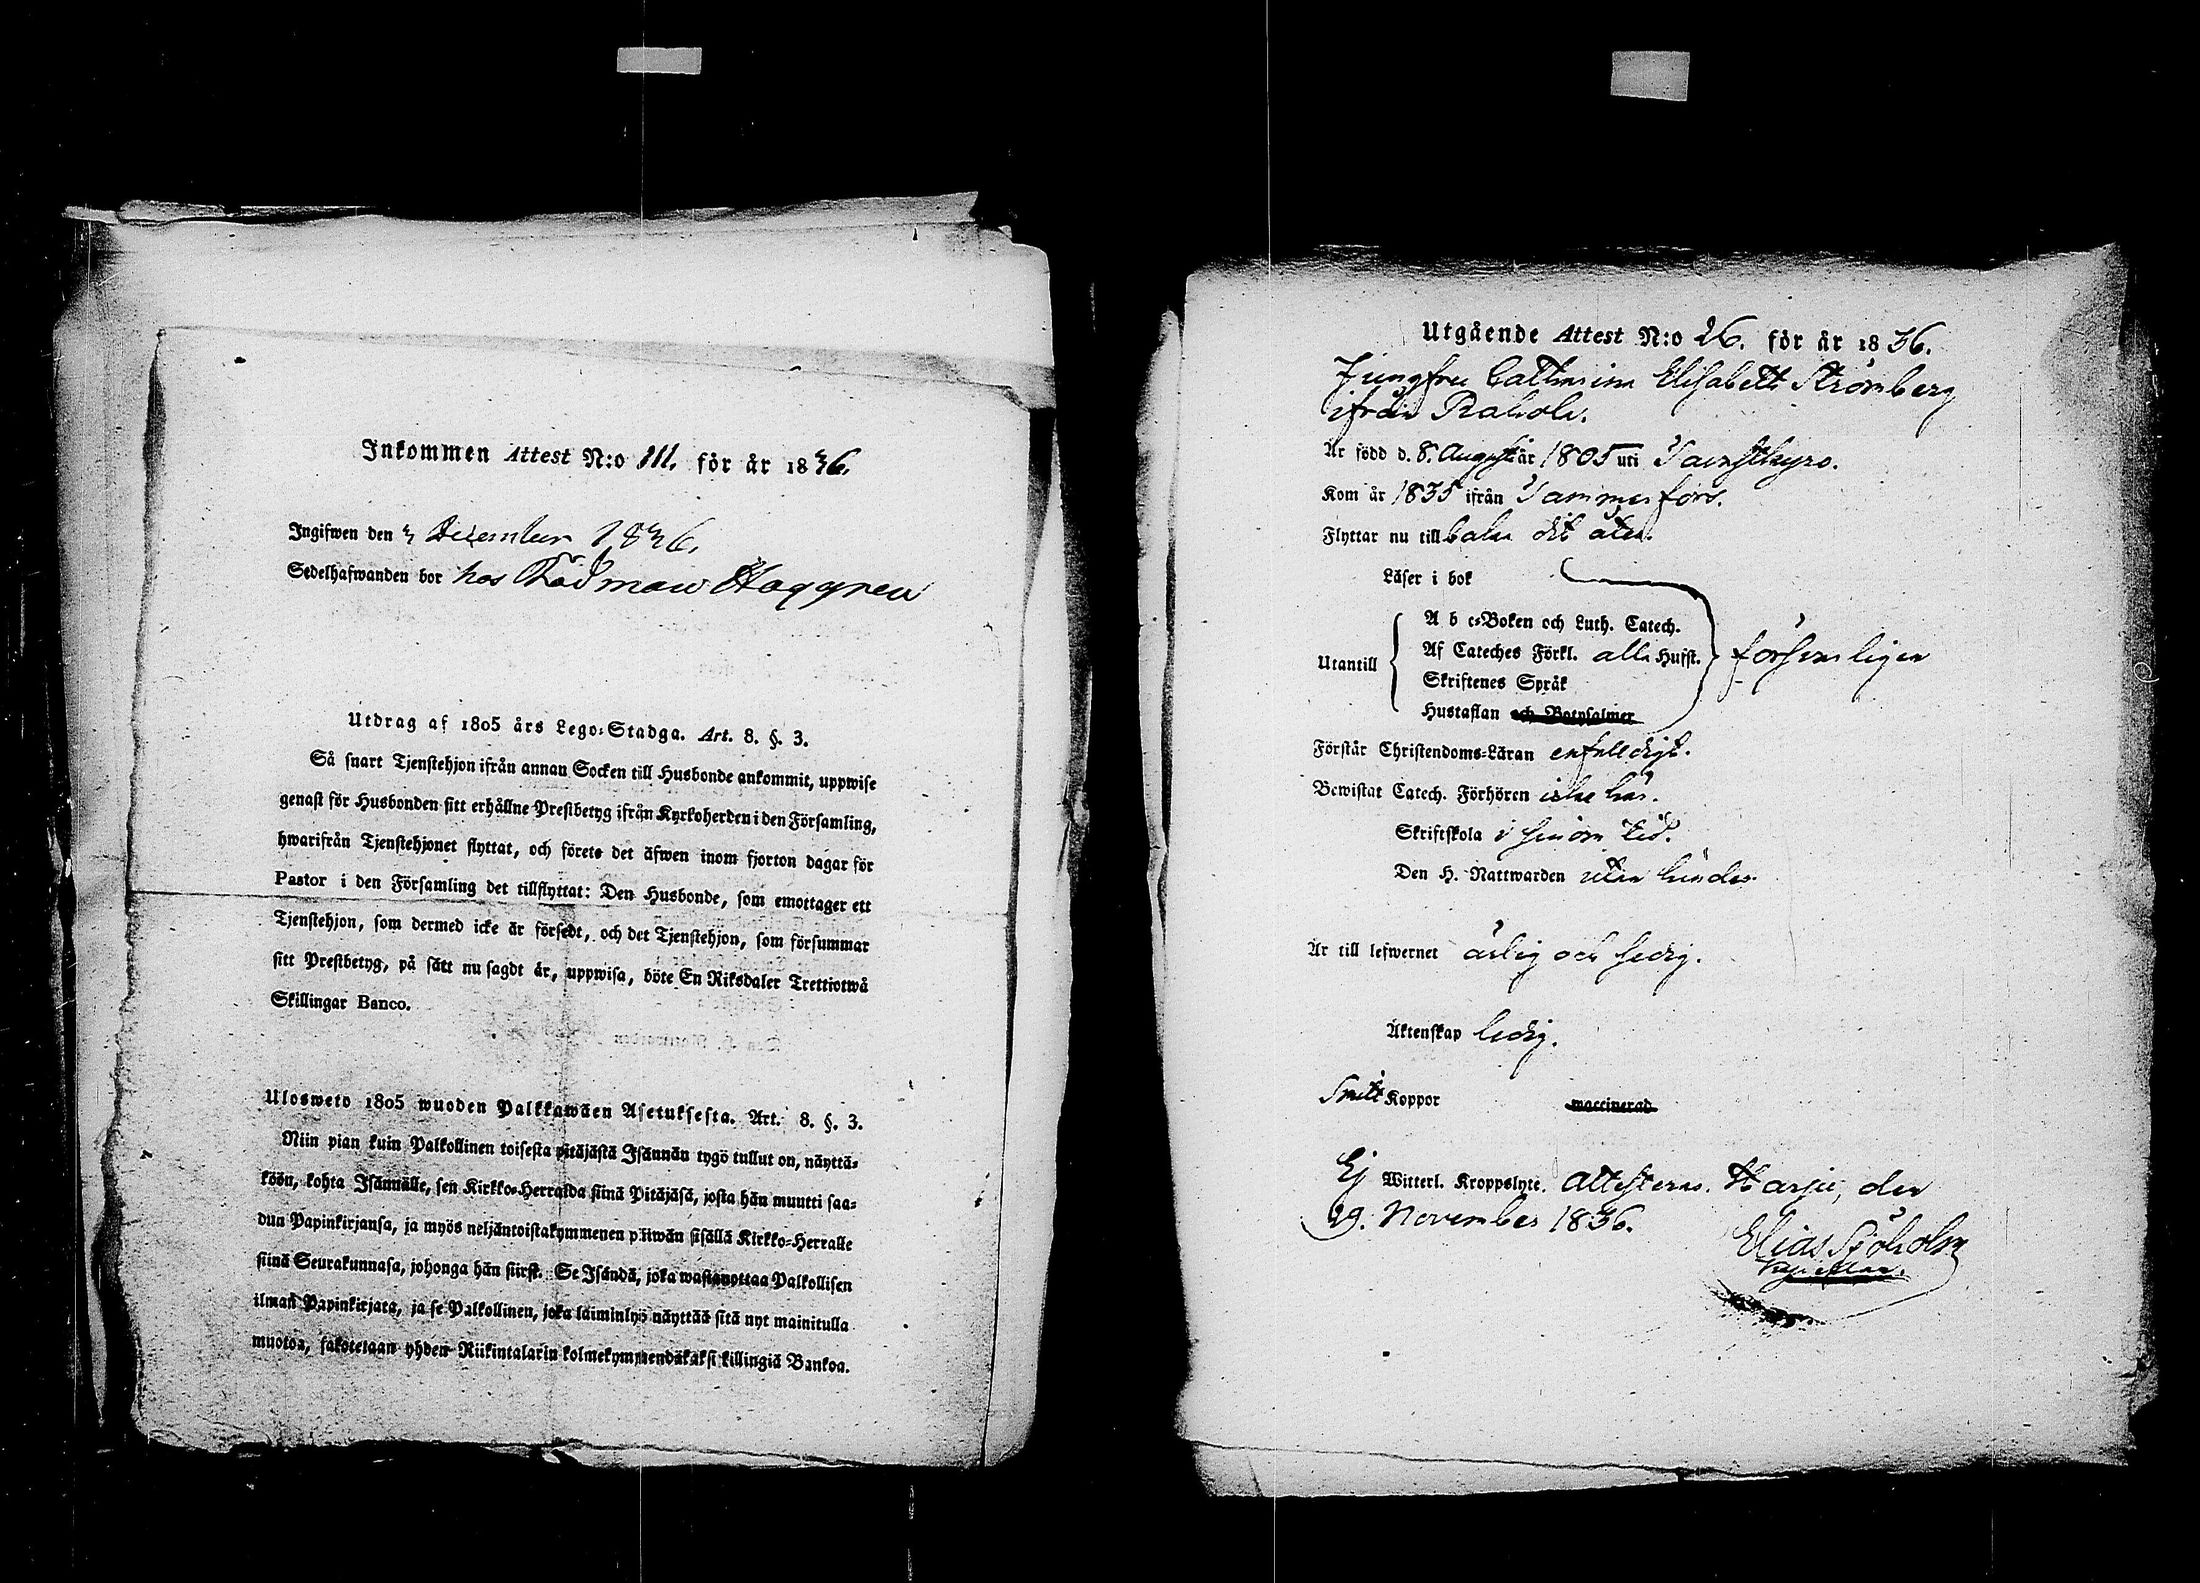 Inkommen Attest N:o 111. för år 1836.
Ingifwen den 3 December 1836.
Sedelhafwanden bor hos Rådman Haggren
Utdrag af 1805 års Lego-Stadga. Art. 8. §. 3.
Så snart Tjenstehjon ifrån annan Socken till Husbonde ankommit, uppwise
genast för Husbonden sitt erhållne Prestbetyg ifrån Kyrkoherden i den Församling,
hwarifrån Tjenstehjonet flyttat, och förete det äfwen inom fjorton dagar för
Pastor i den Församling det tillflyttat: Den Husbonde, som emottager ett
Tjenstehjon, som dermed icke är försedt, och det Tjenstehjon, som försummar
sitt Prestbetyg, på sätt nu sagdt är, uppwisa, böte En Riksdaler Trettiotwå
Skillingar Banco.
Ulosweto 1805 wuoden Palkkawäen Asetuksesta. Art. 8. §. 3.
Niin pian kuin Palkollinen toisesta pitäjästä Isännän tygö tullut on, näyttä-
köön, kohta Isännälle, sen Kirkko-Herralda siinä Pitäjäsä, josta hän muutti saa-
dun Papinkirjansa, ja myös neljäntoistakymmenen päiwän sisällä Kirkko-Herralle
siinä Seurakunnasa, johonga hän siirst. Se Isändä, joka wastanottaa Palkollisen
ilman Papinkirjata, ja se Palkollinen, joka laiminlyö näyttää sitä nyt mainitulla
muotoa, sakotetaan yhden Riikintalarin kolmekymmendäkaksi killingiä Bankoa.
Utgående Attest N:o 26. för år 1836.
Jungfru Catharina Elisabeth Strömberg
ifrån Rahola.
Är född d. 8. August år 1805 uti Tavastkyro.
Kom år 1835 ifrån Tammerfors.
Flyttar nu till dit åter.
Läser i bok
A b c-Boken och Luth. Catech.
Utantill Af Cateches Förkl. alla Hufst. försvarligen
Skriftenes Språk
Hustaflan och Botpsalmer
Förstår Christendoms-Läran enfalldigt.
Bewistat Catech. Förhören icke här.
Skriftskola i sinom tid.
Den H. Nattwarden utan hinder.
Är till lefwernet ärlig och sedig.
Äktenskap ledig.
Smitt Koppor waccinerad
Ej Witterl. Kroppslyte. Attesteras. Harju, den
29. November 1836.
Elias Sjöholm